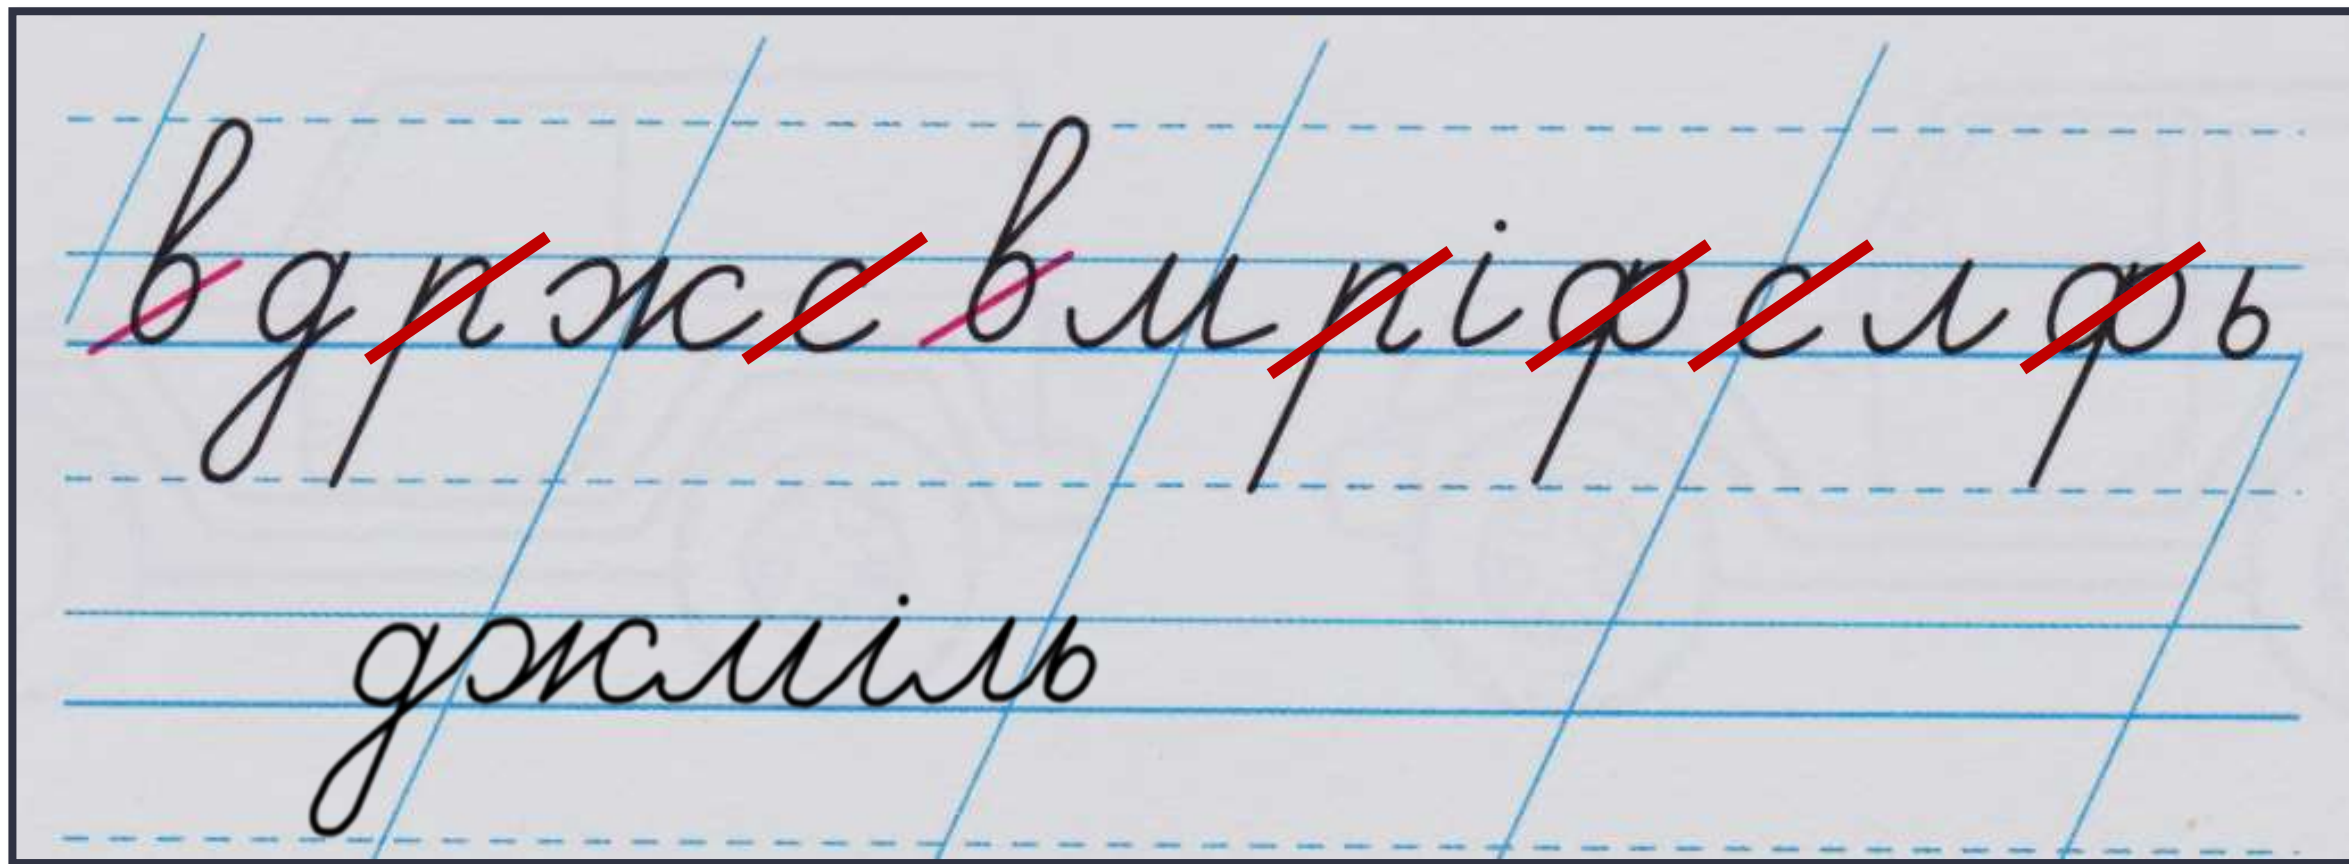 в д р ж с в м р і ф с л ф ь
джміль